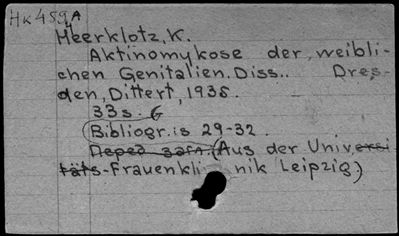 Hk 459A
Meerklotz, K.
Aktinomykose der weibli-
chen Genitalien. Diss.. Dres-
den, Dittert, 1938.
33s. G
Bibliogr. is 29-32.
(Aus der Universi
täts-Frauenkli nik Leipzig)